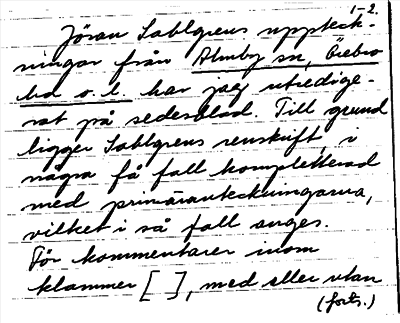 1-2.
Jöran Sahlgrens uppteck-
ningar från Almby sn, Örebro
hd o. l. har jag utredige-
rat på sedesblad. Till grund
ligger Sahlgrens renskrift, i
några få fall kompletterad
med primäranteckningarna,
vilket i så fall anges.
För kommentarer inom
klammer [ ], med eller utan
(forts.)